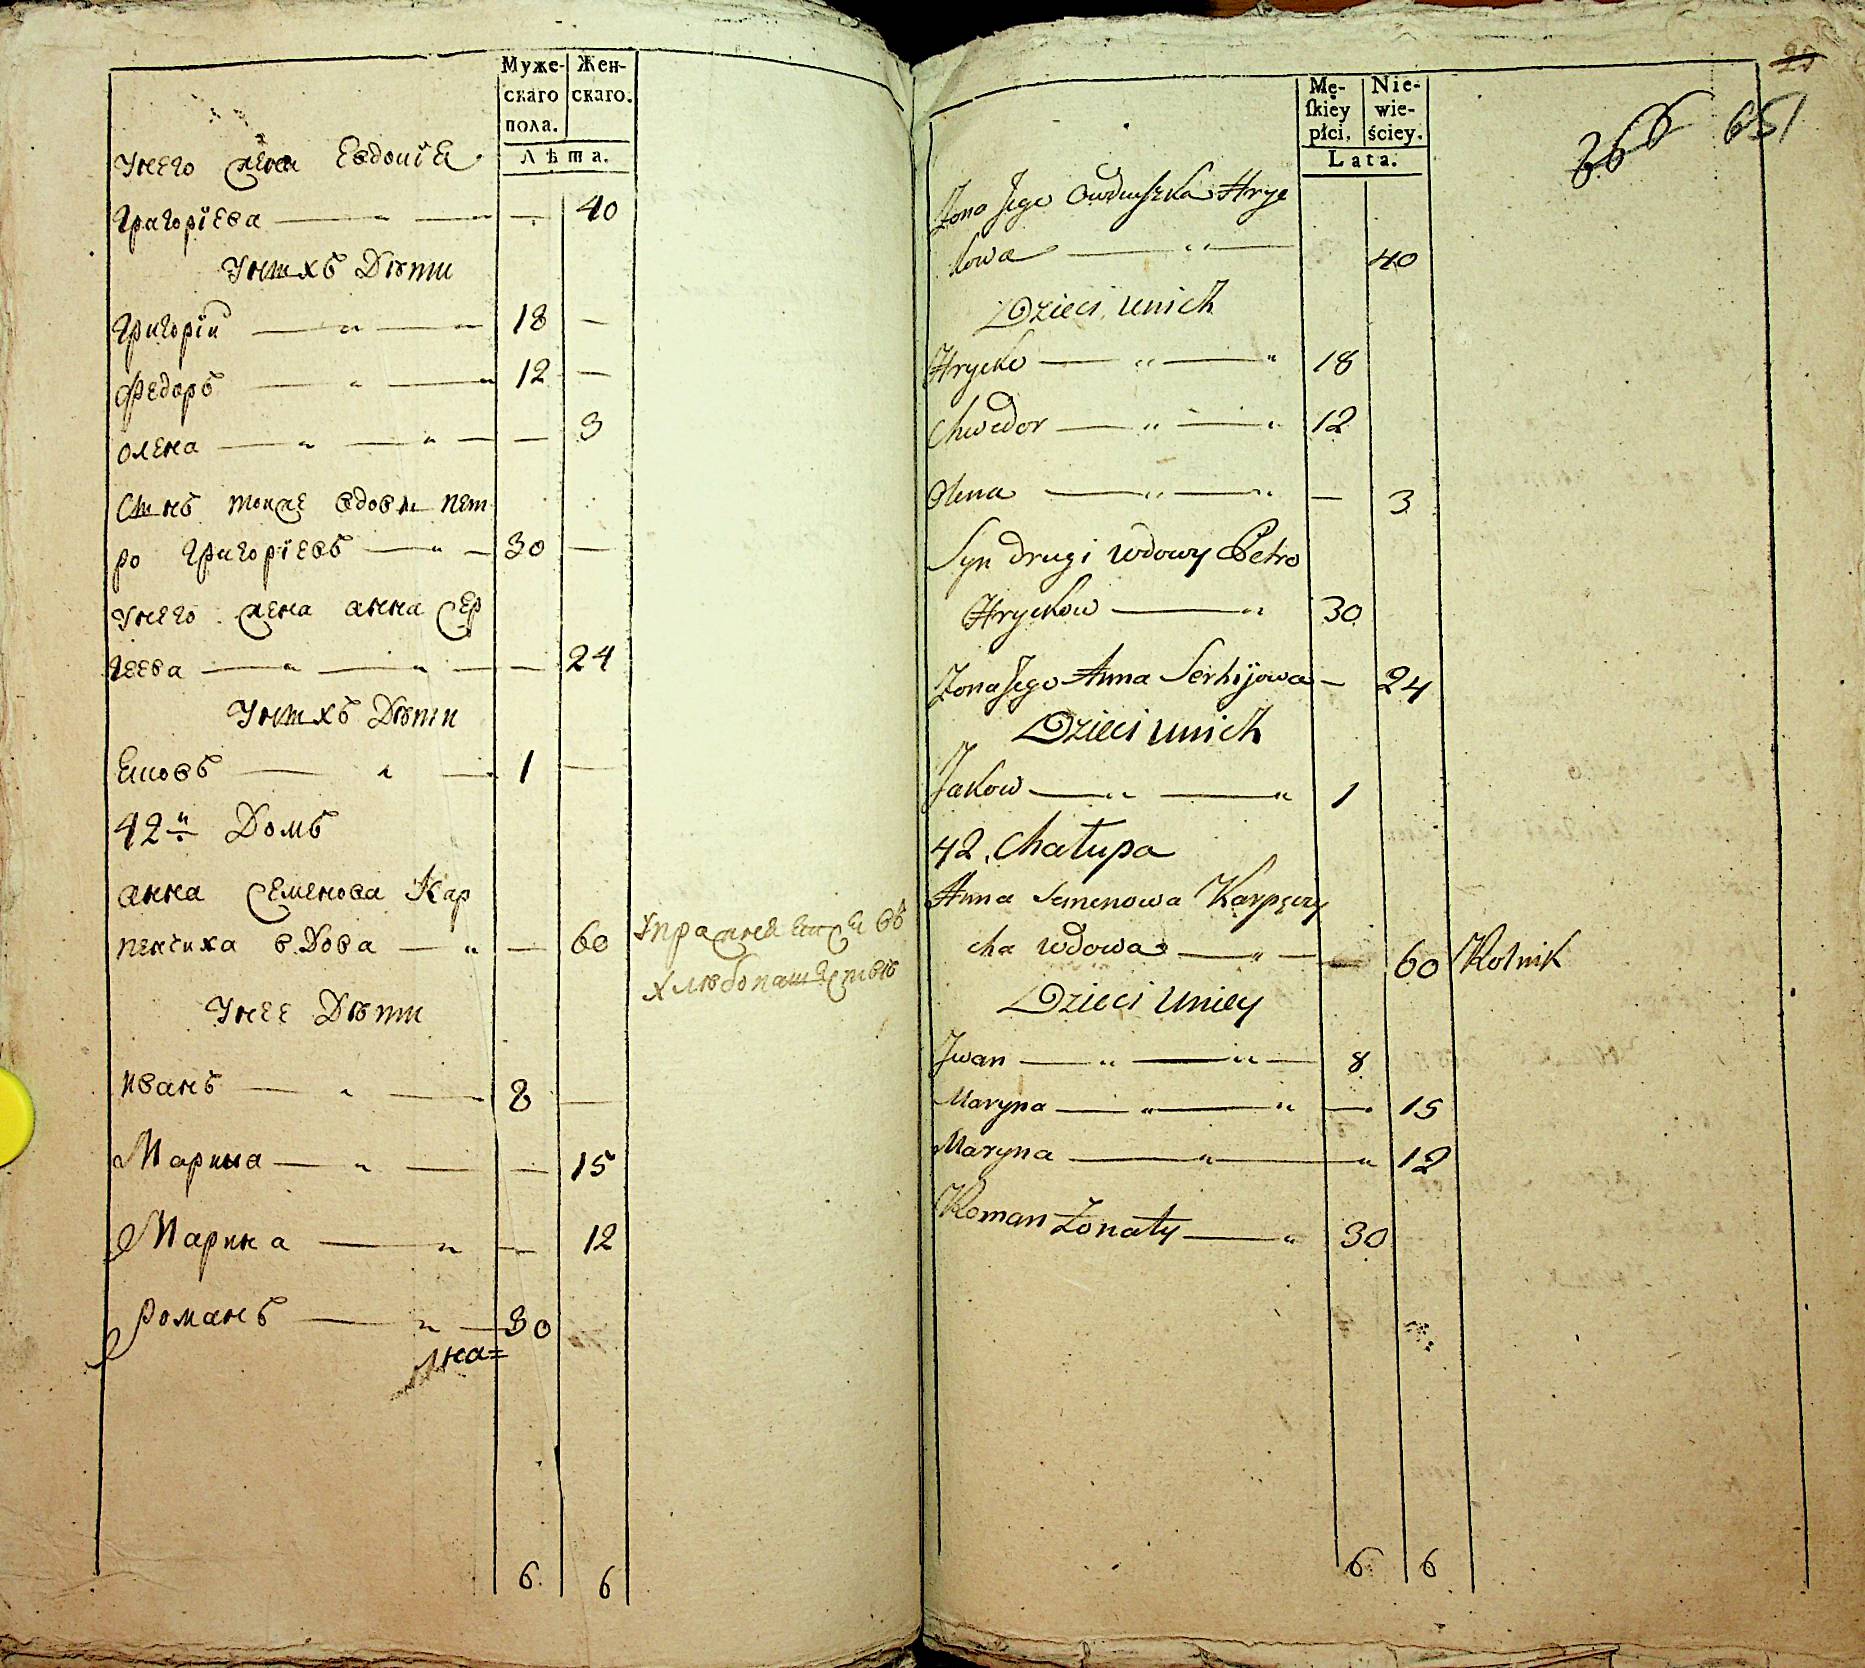 Муже-
скаго
пола.
Жен-
скаго.
Лѣта.
Унего жена Евдокіа
Григоріева — — — 40
Унихъ Дѣти
Григоріи — — 18 —
Федоръ — — 12 —
олена — — — — 3
Синъ тоиже вдови пет
ро Григоріевъ — — 30 —
Унего жена анна Сер
геева — — — — 24
Унихъ Дѣти
Яковъ — — 1 —
42й Домъ
анна Семенова Кар
пенчиха вдова — — 60
Упражняется въ
хлѣбопашествѣ
Унее Дѣти
иванъ — — 8 —
Марина — — — 15
Марина — — 12
Романъ — — 30
6 6
Mę-
ſkiéy
płci.
Nie-
wie-
ściey.
Lata.
25
366 651
Żona Jego Owduszka Hryc
kowa — — 40
Dzieci unich
Hrycko — — 18
Chwedor — — 12
Olena — — — 3
Syn drugi wdowy Petro
Hryckow — 30
Zona Jego Anna Serhijowa — 24
Dzieci unich
Jakow — — 1
42. Chałupa
Anna Semenowa Karpęczy
cha wdowa — — — 60 Rolnik
Dzieci Uniey
Jwan — — — 8
Maryna — — — 15
Maryna — — 12
Roman Żonaty — 30
6 6